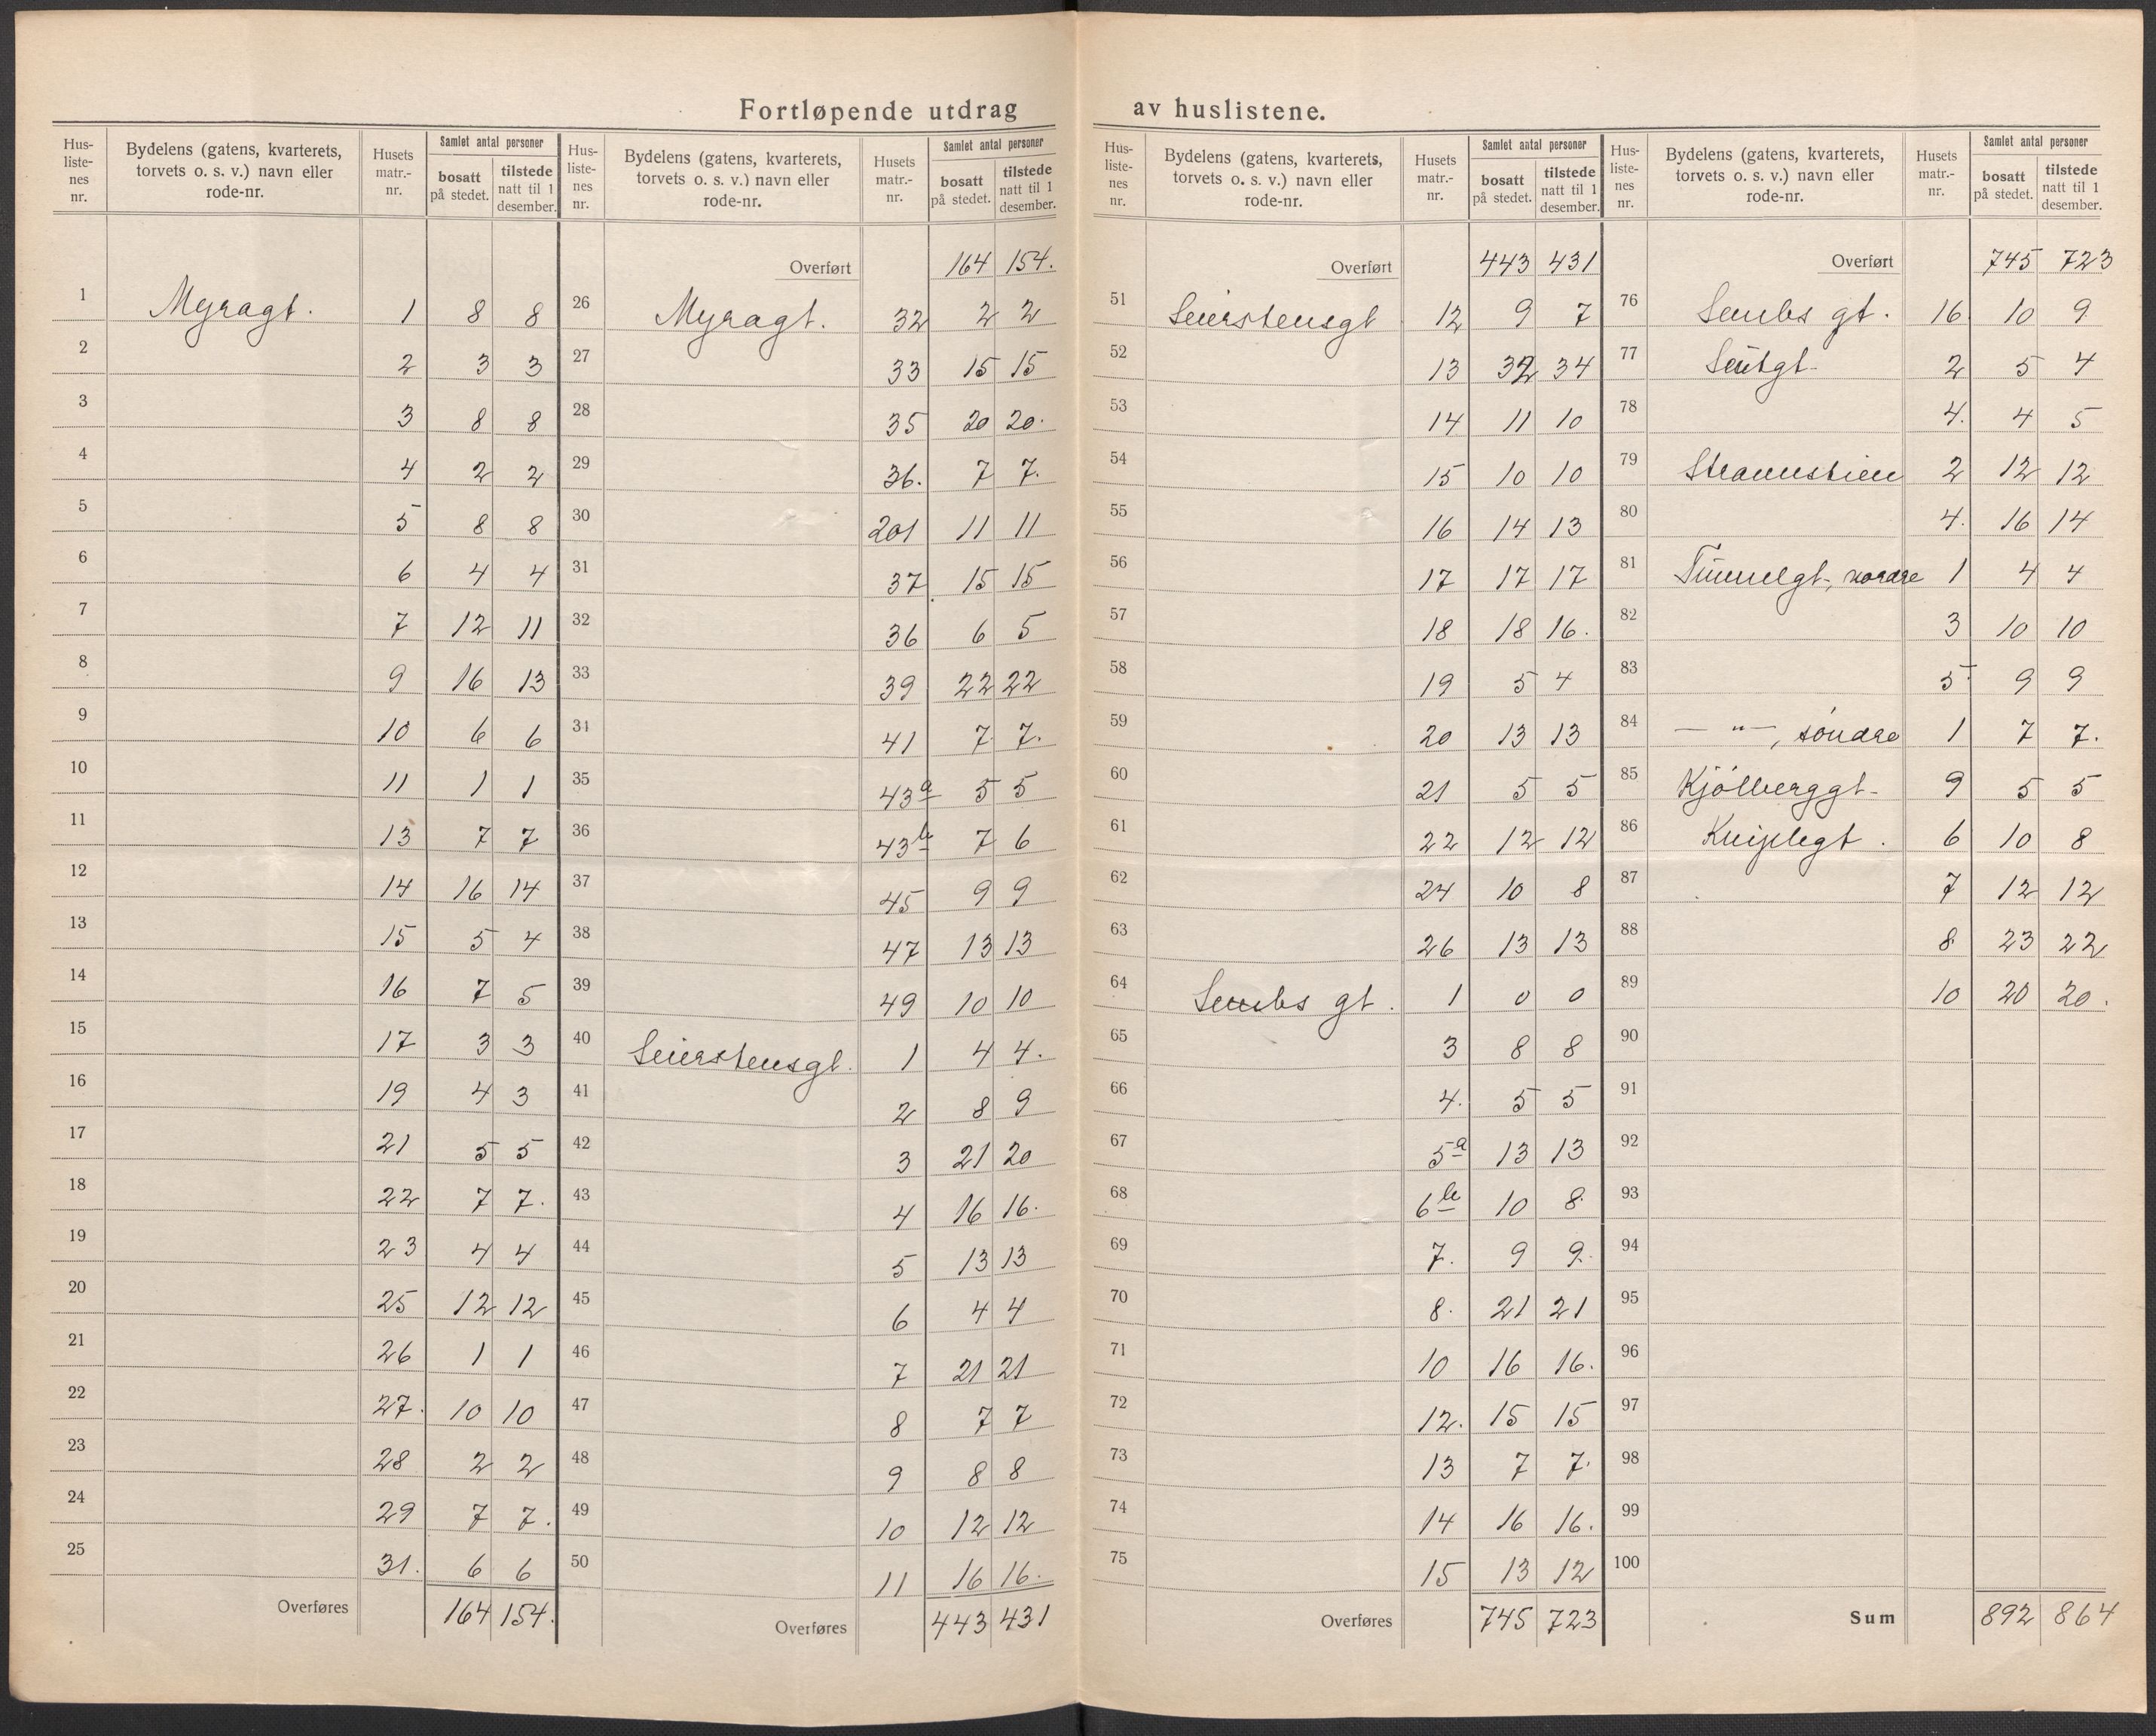 Fortløpende utdrag av huslistene.
Hus-listenes nr. | Bydelens (gatens, kvarterets, torvets o. s. v.) navn eller rode-nr. | Husets matr.-nr. | Samlet antal personer bosatt på stedet. | tilstede natt til 1 desember.
1 Myragt. 1 8 8
2 2 3 3
3 3 8 8
4 4 2 2
5 5 8 8
6 6 4 4
7 7 12 11
8 9 16 13
9 10 6 6
10 11 1 1
11 13 7 7
12 14 16 14
13 15 5 4
14 16 7 5
15 17 3 3
16 19 4 3
17 21 5 5
18 22 7 7.
19 23 4 4
20 25 12 12
21 26 1 1
22 27. 10 10
23 28 2 2
24 29 7 7.
25 31. 6 6
Overføres 164 154.
Hus-listenes nr. | Bydelens (gatens, kvarterets, torvets o. s. v.) navn eller rode-nr. | Husets matr.-nr. | Samlet antal personer bosatt på stedet. | tilstede natt til 1 desember.
Overført 164 154.
26 Myragt. 32 2 2
27 33 15 15
28 35 20 20.
29 36. 7 7.
30 201 11 11
31 37 15 15
32 36 6 5
33 39 22 22
34 41 7 7.
35 43a 5 5
36 43b 7 6
37 45 9 9
38 47 13 13
39 49 10 10
40 Seierstensgt. 1 4 4.
41 2 8 9
42 3 21 20
43 4 16 16.
44 5 13 13
45 6 4 4
46 7 21 21
47 8 7 7
48 9 8 8
49 10 12 12
50 11 16 16.
Overføres 443 431
Hus-listenes nr. | Bydelens (gatens, kvarterets, torvets o. s. v.) navn eller rode-nr. | Husets matr.-nr. | Samlet antal personer bosatt på stedet. | tilstede natt til 1 desember.
Overført 443 431
51 Seierstensgt 12 9 7
52 13 32 34
53 14 11 10
54 15 10 10
55 16 14 13
56 17 17 17
57 18 18 16.
58 19 5 4
59 20 13 13
60 21 5 5
61 22 12 12
62 24 10 8
63 26 13 13
64 Sembs gt. 1 0 0
65 3 8 8
66 4. 5 5
67 5a 13 13
68 6b 10 8.
69 7. 9 9.
70 8. 21 21
71 10 16 16.
72 12. 15 15
73 13 7 7.
74 14 16 16.
75 15 13 12
Overføres 745 723
Hus-listenes nr. | Bydelens (gatens, kvarterets, torvets o. s. v.) navn eller rode-nr. | Husets matr.-nr. | Samlet antal personer bosatt på stedet. | tilstede natt til 1 desember.
Overført 745 723
76 Sembs gt. 16 10 9
77 2 5 4
78 4. 4 5
79 2 12 12
80 4. 16 14
81 Tunnelgt., nordre 1 4 4
82 3 10 10
83 5 9 9
84 — " —, søndre 1 7 7.
85 Kjölberggt. 9 5 5
86 Kniplegt. 6 10 8
87 7 12 12
88 8 23 22
89 10 20 20.
90
91
92
93
94
95
96
97
98
99
100
Sum 892 864